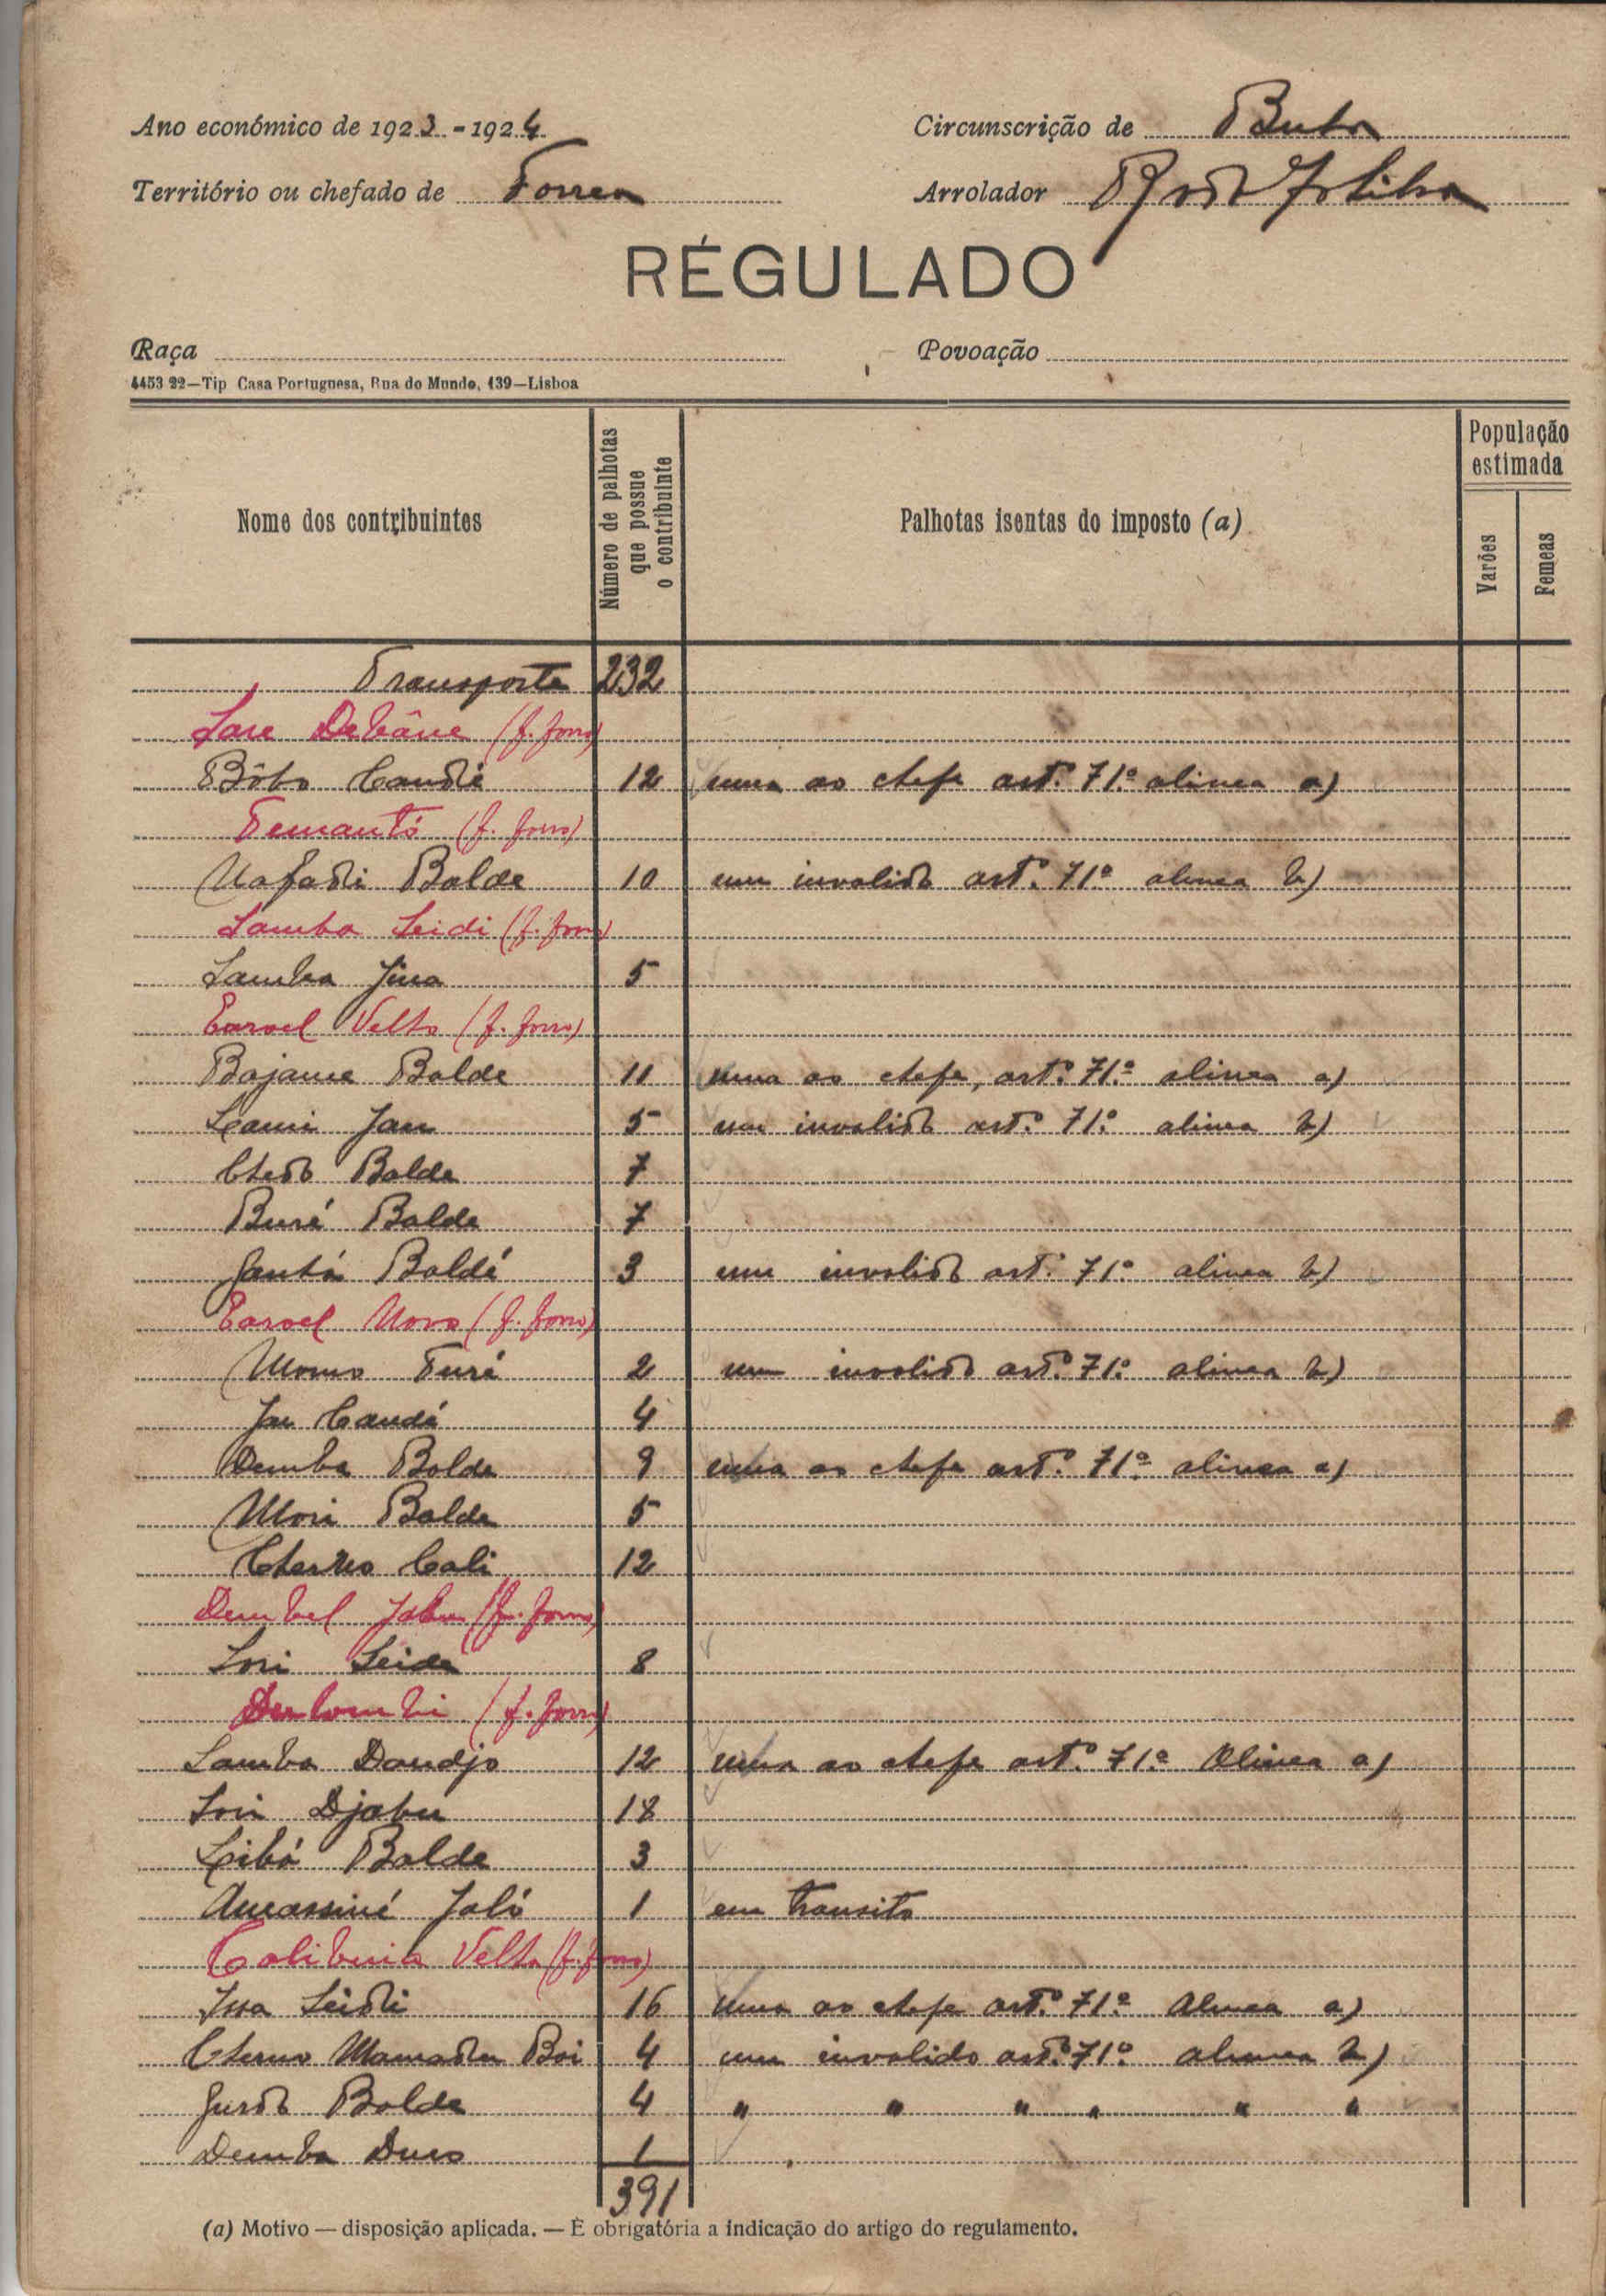 Ano económico de 1923-1924
Circunscrição de Buba
Território ou chefado de Forrea
Arrolador
RÉGULADO
Raça
Povoação
4453 22—Tip Casa Portuguesa, Rua do Mundo, 139—Lisboa
Nome dos contribuintes
Número de palhotas que possue o contribuinte
Palhotas isentas do imposto (a)
População estimada
Varões
Femeas
Transporte 232
Sare Debâne (f. forro)
Bôbo Candé 12 uma ao chefe artº. 71.º alinea a)
Temantó (f. forro)
Nafadi Balde 10 um invalido artº. 71.º alinea b)
Samba Seidi (f. forro)
Samba Jina 5
Earoel Velho (f. forro)
Bajame Balde 11 uma ao chefe, artº. 71.º alinea a)
5 um invalido artº. 71.º alinea b)
Chedo Balde 7
Buré Balde 7
Jantá Baldé 3 um invalido artº. 71.º alinea b)
Earoel Novo (f. forro)
Momo Turé 2 um invalido artº. 71.º alinea b)
Jau Candé 4
Demba Balde 9 uma ao chefe artº. 71.º alinea a)
Mori Balde 5
Cherno Cali 12
Dembel Jabu (f. forro)
Sori Seide 8
(f. forro)
Samba Dandjo 12 uma ao chefe artº. 71.º Alinea a)
Sori Djabu 18
Cibó Balde 3
Ansassiné Jaló 1 em transito
Colibuia Velha (f. forro)
Issa Seidi 16 uma ao chefe artº. 71.º Alinea a)
Cherno Mamadu Boi 4 um invalido artº. 71.º alinea b)
Jurdo Balde 4 " " " " " "
Demba Duro 1
391
(a) Motivo — disposição aplicada. — É obrigatória a indicação do artigo do regulamento.